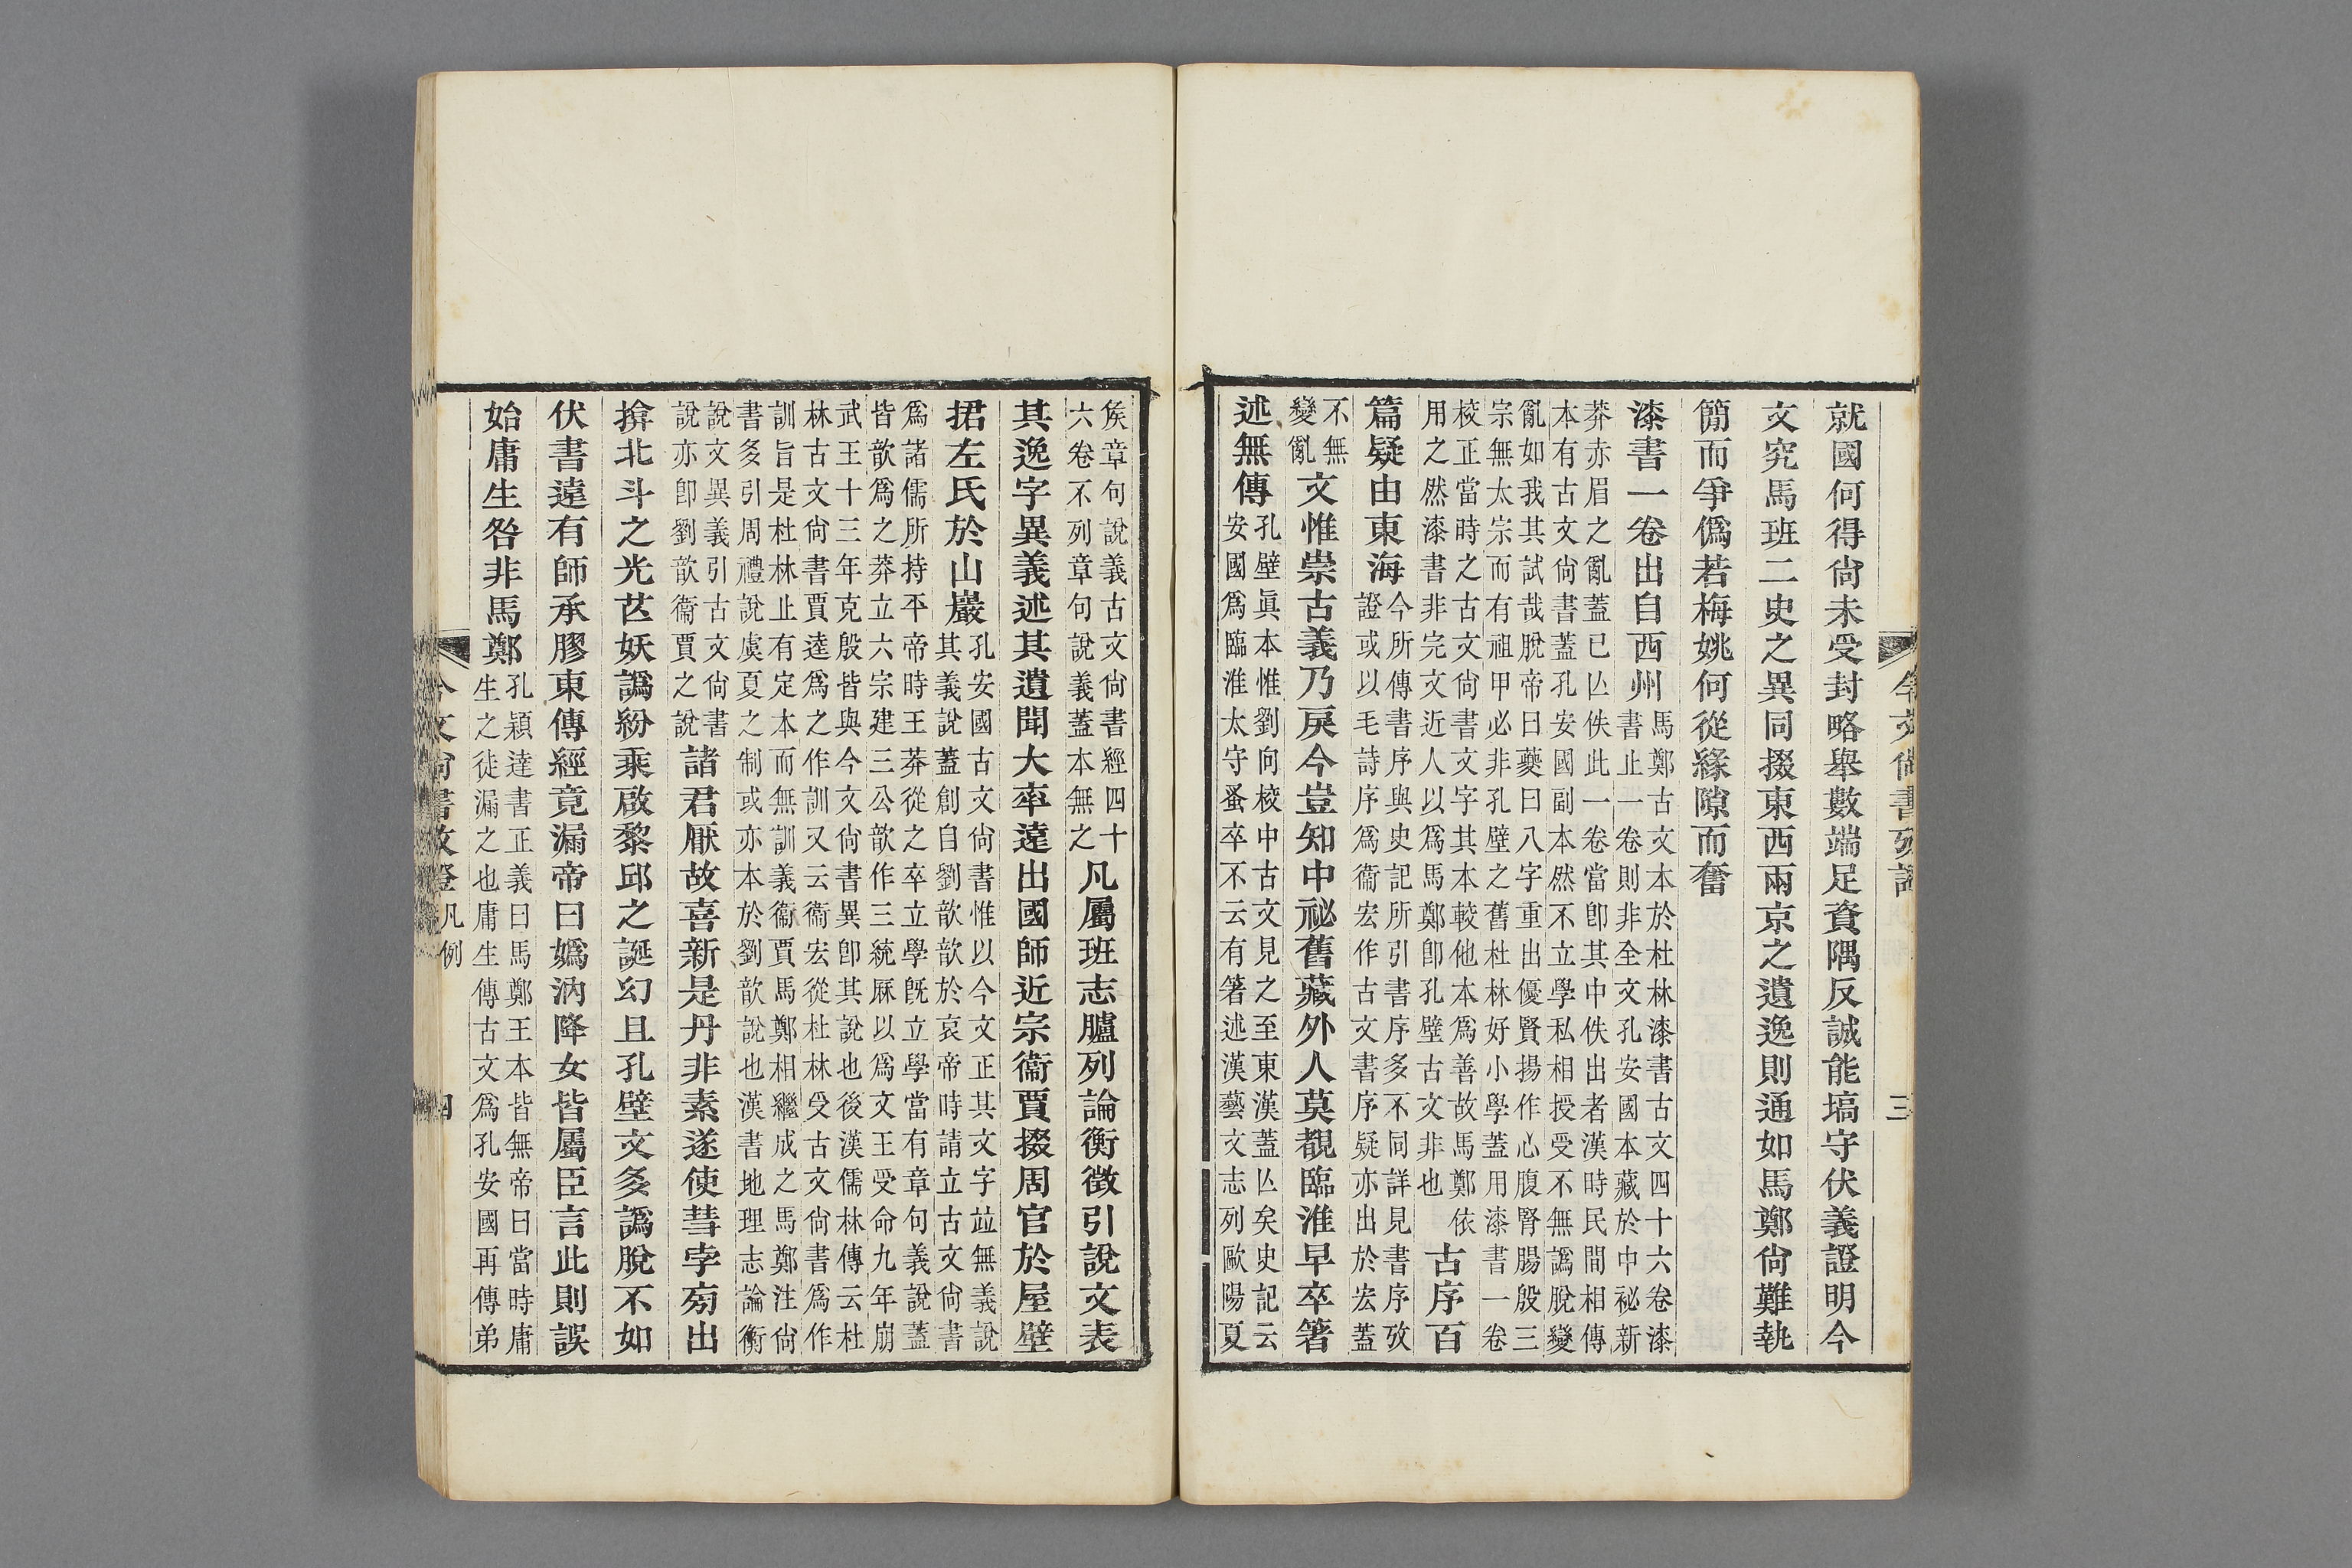 今文尙書攷證
三
就國何得尙未受封略舉數端足資隅反誠能塙守伏義證明今
文究馬班二史之異同掇東西兩京之遺逸則通如馬鄭尙難執
簡而爭僞若梅姚何從緣隙而奮
漆書一卷出自西州
馬鄭古文本於杜林漆書古文四十六卷漆
書止一卷則非全文孔安國本藏於中祕新
莽赤眉之亂蓋已亾佚此一卷當卽其中佚出者漢時民間相傳
本有古文尙書蓋孔安國副本然不立學私相授受不無譌脫變
亂如我其試哉脫帝曰夔曰八字重出優賢揚作心腹腎腸殷三
宗無太宗而有祖甲必非孔壁之舊杜林好小學蓋用漆書一卷
校正當時之古文尙書文字其本較他本爲善故馬鄭依
用之然漆書非完文近人以爲馬鄭卽孔壁古文非也
古序百
篇疑由東海
今所傳書序與史記所引書序多不同詳見書序攷
證或以毛詩序爲衞宏作古文書序疑亦出於宏蓋
不無
變亂
文惟崇古義乃戾今豈知中祕舊藏外人莫覩臨淮早卒箸
述無傳
孔壁眞本惟劉向校中古文見之至東漢蓋亾矣史記云
安國爲臨淮太守蚤卒不云有箸述漢藝文志列歐陽夏
矦章句說義古文尙書經四十
六卷不列章句說義蓋本無之
凡屬班志臚列論衡徵引說文表
其逸字異義述其遺聞大率遠出國師近宗衞賈掇周官於屋壁
捃左氏於山巖
孔安國古文尙書惟以今文正其文字竝無義說
其義說蓋創自劉歆歆於哀帝時請立古文尙書
爲諸儒所持平帝時王莽從之卒立學旣立學當有章句義說蓋
皆歆爲之莽立六宗建三公歆作三統厤以爲文王受命九年崩
武王十三年克殷皆與今文尙書異卽其說也後漢儒林傳云杜
林古文尙書賈逵爲之作訓又云衞宏從杜林受古文尙書爲作
訓旨是杜林止有定本而無訓義衞賈馬鄭相繼成之馬鄭注尙
書多引周禮說虞夏之制或亦本於劉歆說也漢書地理志論衡
說文異義引古文尙書
說亦卽劉歆衞賈之說
諸君厭故喜新是丹非素遂使彗孛㫄出
揜北斗之光芒妖譌紛乘啟黎邱之誕幻且孔壁文多譌脫不如
伏書遠有師承膠東傳經竟漏帝曰嬀汭降女皆屬臣言此則誤
始庸生咎非馬鄭
孔穎達書正義曰馬鄭王本皆無帝曰當時庸
生之徒漏之也庸生傳古文爲孔安國再傳弟
今文尙書攷證
凡例
四